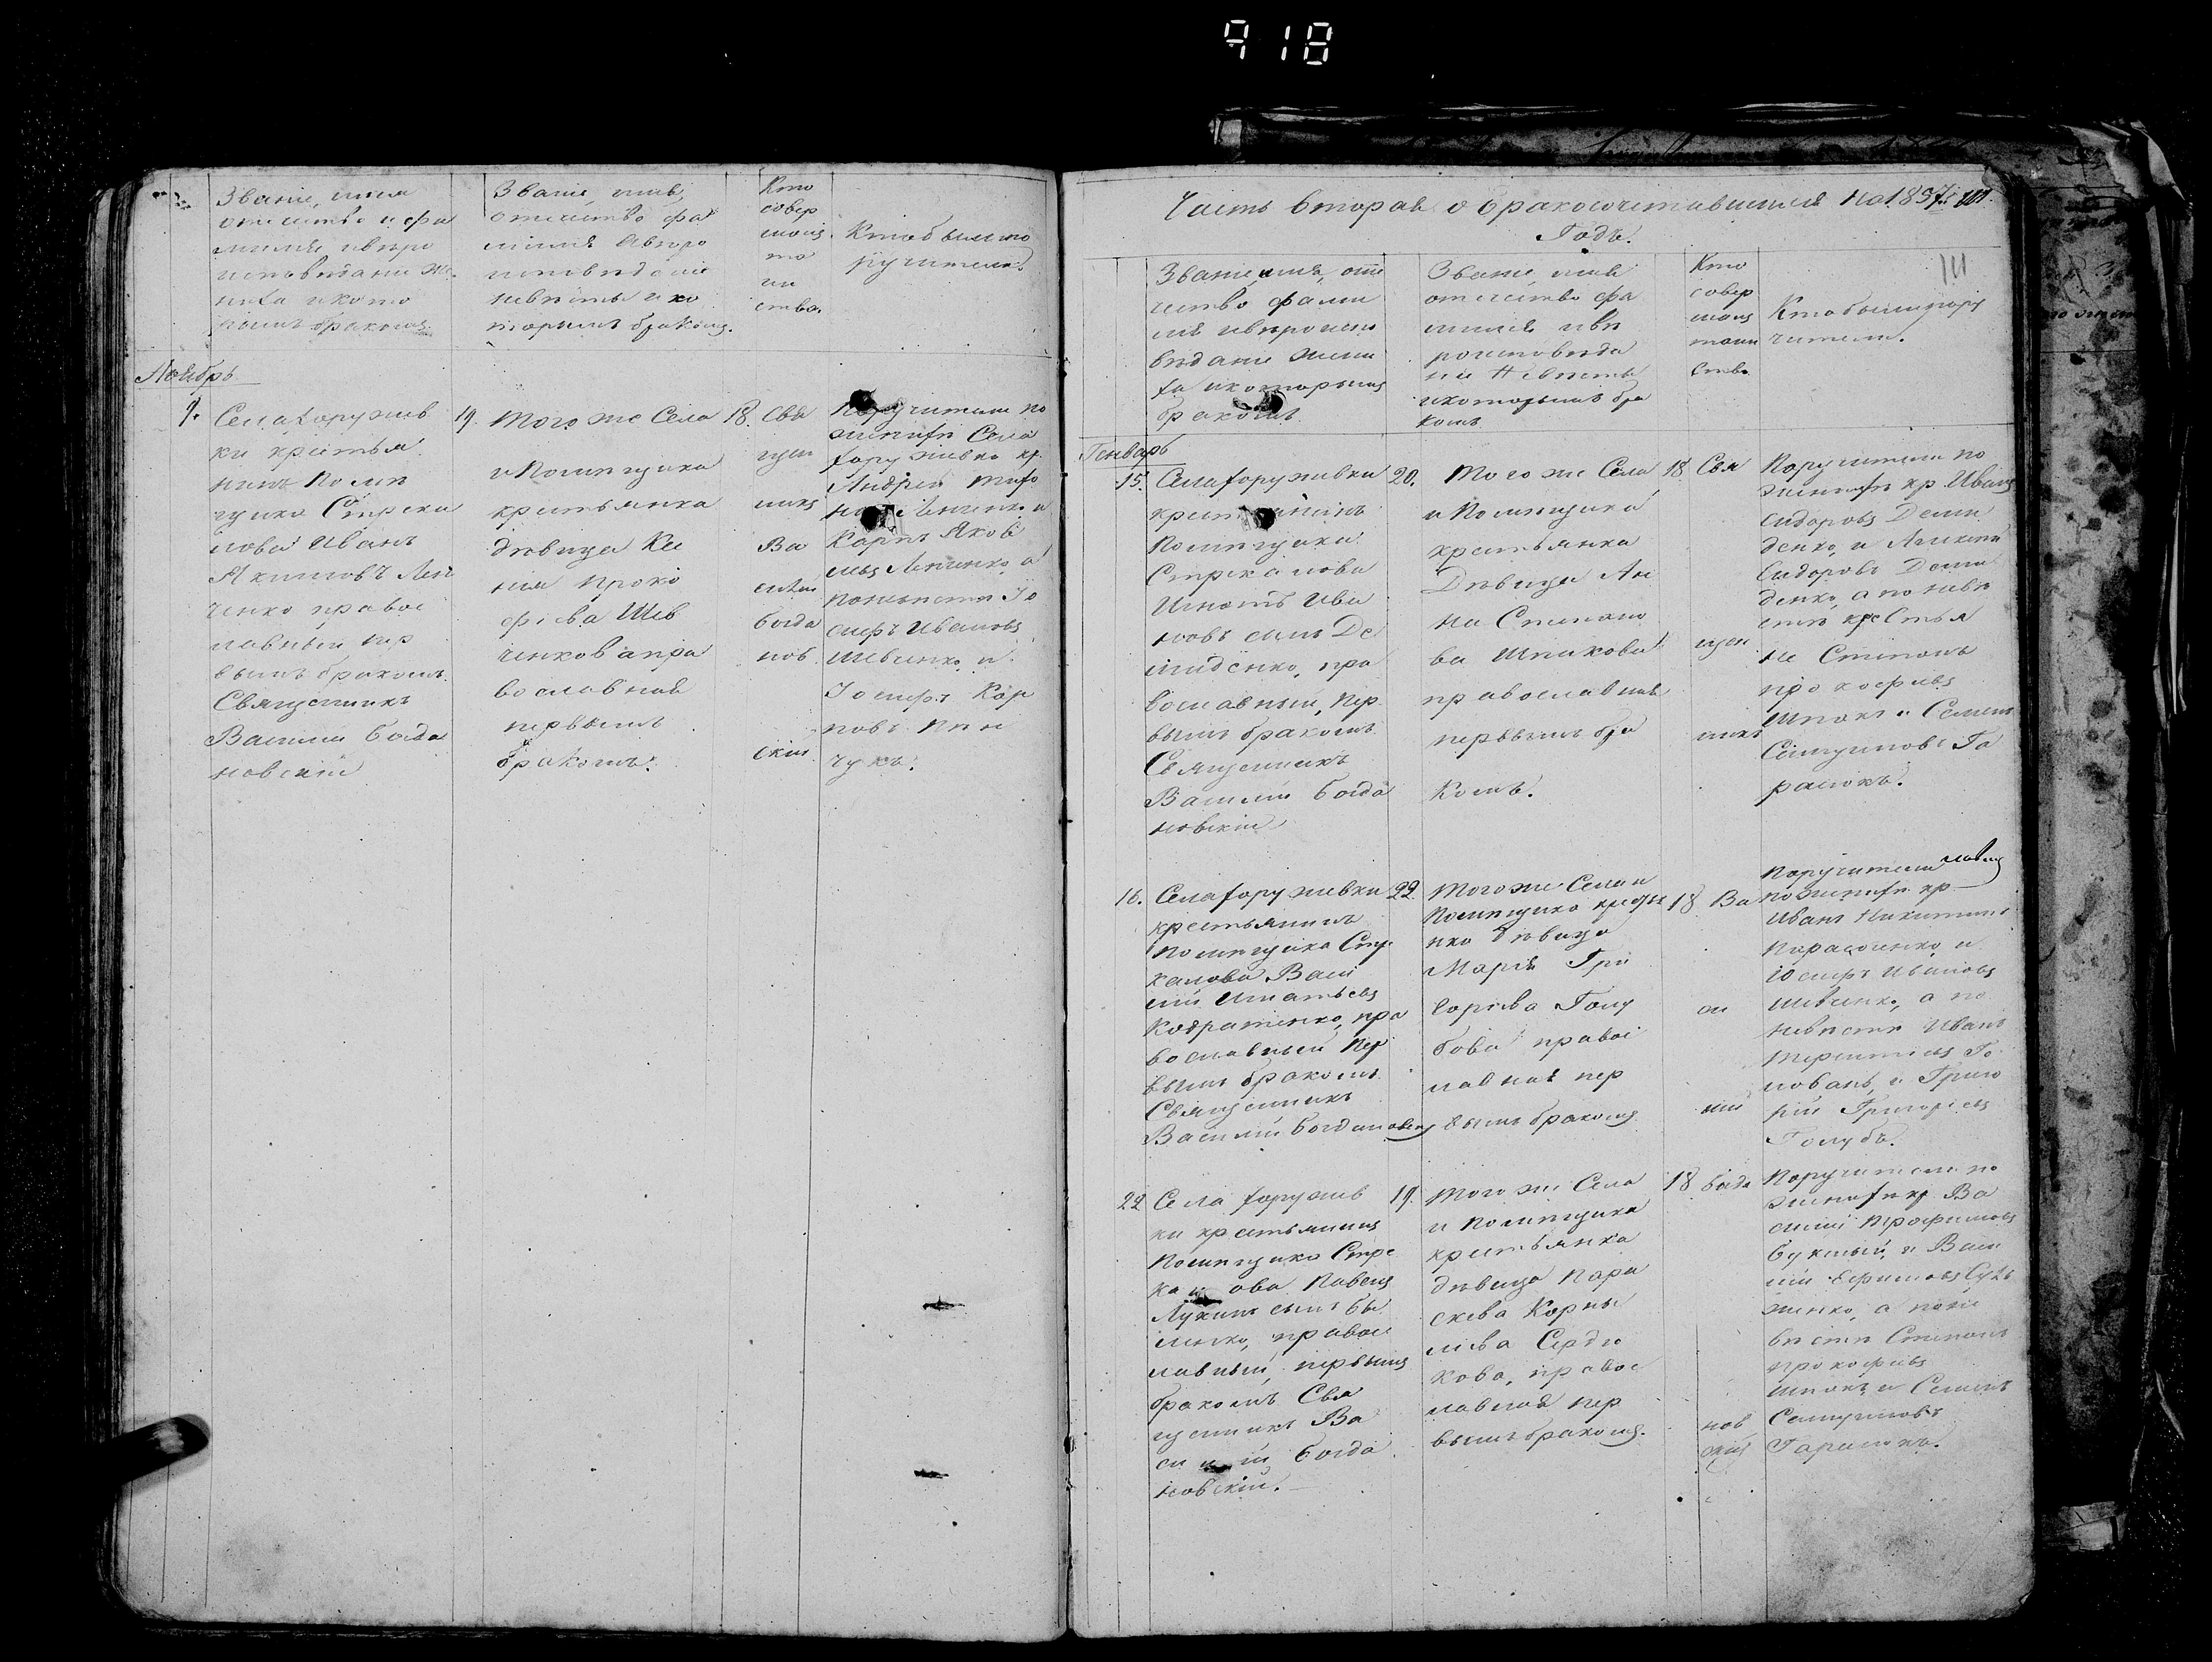 918
Званіе, имя
отчество и фа
милія и вѣро
исповѣданіе же
ниха и кото
рымъ бракомъ.
Званіе, имя,
отчество фа
милія и вѣро
исповѣданіе
невѣсты и ко
торымъ бракомъ.
Кто
совер
шалъ
та
ин
ство.
Кто были по
ручители.
Ноябрь
9.
Села Хоружев
ки крестья
нинъ Помѣ
щика Стрека
лова Иванъ
Акимовъ
ченко правос
лавный пер
вымъ бракомъ.
Священникъ
Василій Богда
новскій
19.
Того же Села
и Помѣщика
крестьянка
дѣвица Ксе
нія Проко
фіева Шев
ченкова пра
вославная
первымъ
бракомъ.
18.
Свя
щен
никъ
Ва
силій
Богда
нов
скій
Поручители по
женихѣ Села
Хоружевки кр.
Андрей
Карпъ Яков
левъ а
по невѣстѣ Іо
сифъ Ивановъ
Шевченко, и
Іосифъ Кар
повъ
чукъ.
Часть вторая о бракосочетавшихся на 1857й 111.
Годъ.
111
Званіе имя, отче
ство фами
лія и вѣроиспо
вѣданіе жени
ха и которымъ
бракомъ
Званіе имя
отчество фа
милія и вѣ
роисповѣда
ніе Невѣсты
и которымъ бра
комъ
Кто
совер
шалъ
таин
ство
Кто были пору
чители.
Генварь
15.
Села Хоружевки
крестьянинъ
Помѣщика
Стрекалова
Игнатъ Ива
новъ сынъ Де
миденко, пра
вославный, пер
вымъ бракомъ.
Священникъ
Василій Богда
новскій
20.
Того же Села
и Помѣщика
крестьянка
Дѣвица Ан
на Степано
ва Шпакова
православная
первымъ бра
комъ.
18.
Свя
щен
никъ
Поручители по
женихѣ кр Иванъ
Сидоровъ Деми
денко, и Алексѣй
Сидоровъ Деми
денко, а по невѣ
стѣ крестья
не Степанъ
Прокофьевъ
Шпакъ и Семенъ
Самуиловъ Га
расюкъ.
16.
Села Хоружевки
крестьянинъ
Помѣщика Стре
калова Васи
лій Игнатьевъ
Кодратенко, пра
вославный пер
вымъ бракомъ.
Священникъ
Василій Богдановскій
22.
Того же Села и
Помѣщика крестья
нка дѣвица
Марія Гри
горіева Голу
бова правос
лавная пер
вымъ бракомъ
18
Ва
си
лій
Поручители
по женихѣ кр
Иванъ Никитинъ
и
Іосифъ Ивановъ
Шевченко, а по
невѣстѣ Иванъ
Терентіевъ Го
ловань, и Григо
рій Григорьевъ
Голубъ.
22
Села Хоружев
ки крестьянинъ
Помѣщика Стре
калова Павелъ
Лукинъ сынъ Бы
ленко, правос
лавный, первымъ
бракомъ Свя
щенникъ Ва
силій Богда
новскій.
19.
Того же Села
и Помѣщика
крестьянка
дѣвица Пара
скева Корни
ліева Сердю
кова, правос
лавная пер
вымъ бракомъ.
18
Богда
нов
скій
Поручители по
женихѣ кр Ва
силій Трофимовъ
и Васи
лій Ефимовъ
а по не
вѣстѣ Степанъ
Прокофіевъ
Шпакъ и Семенъ
Самуиловъ
Гарасюкъ.